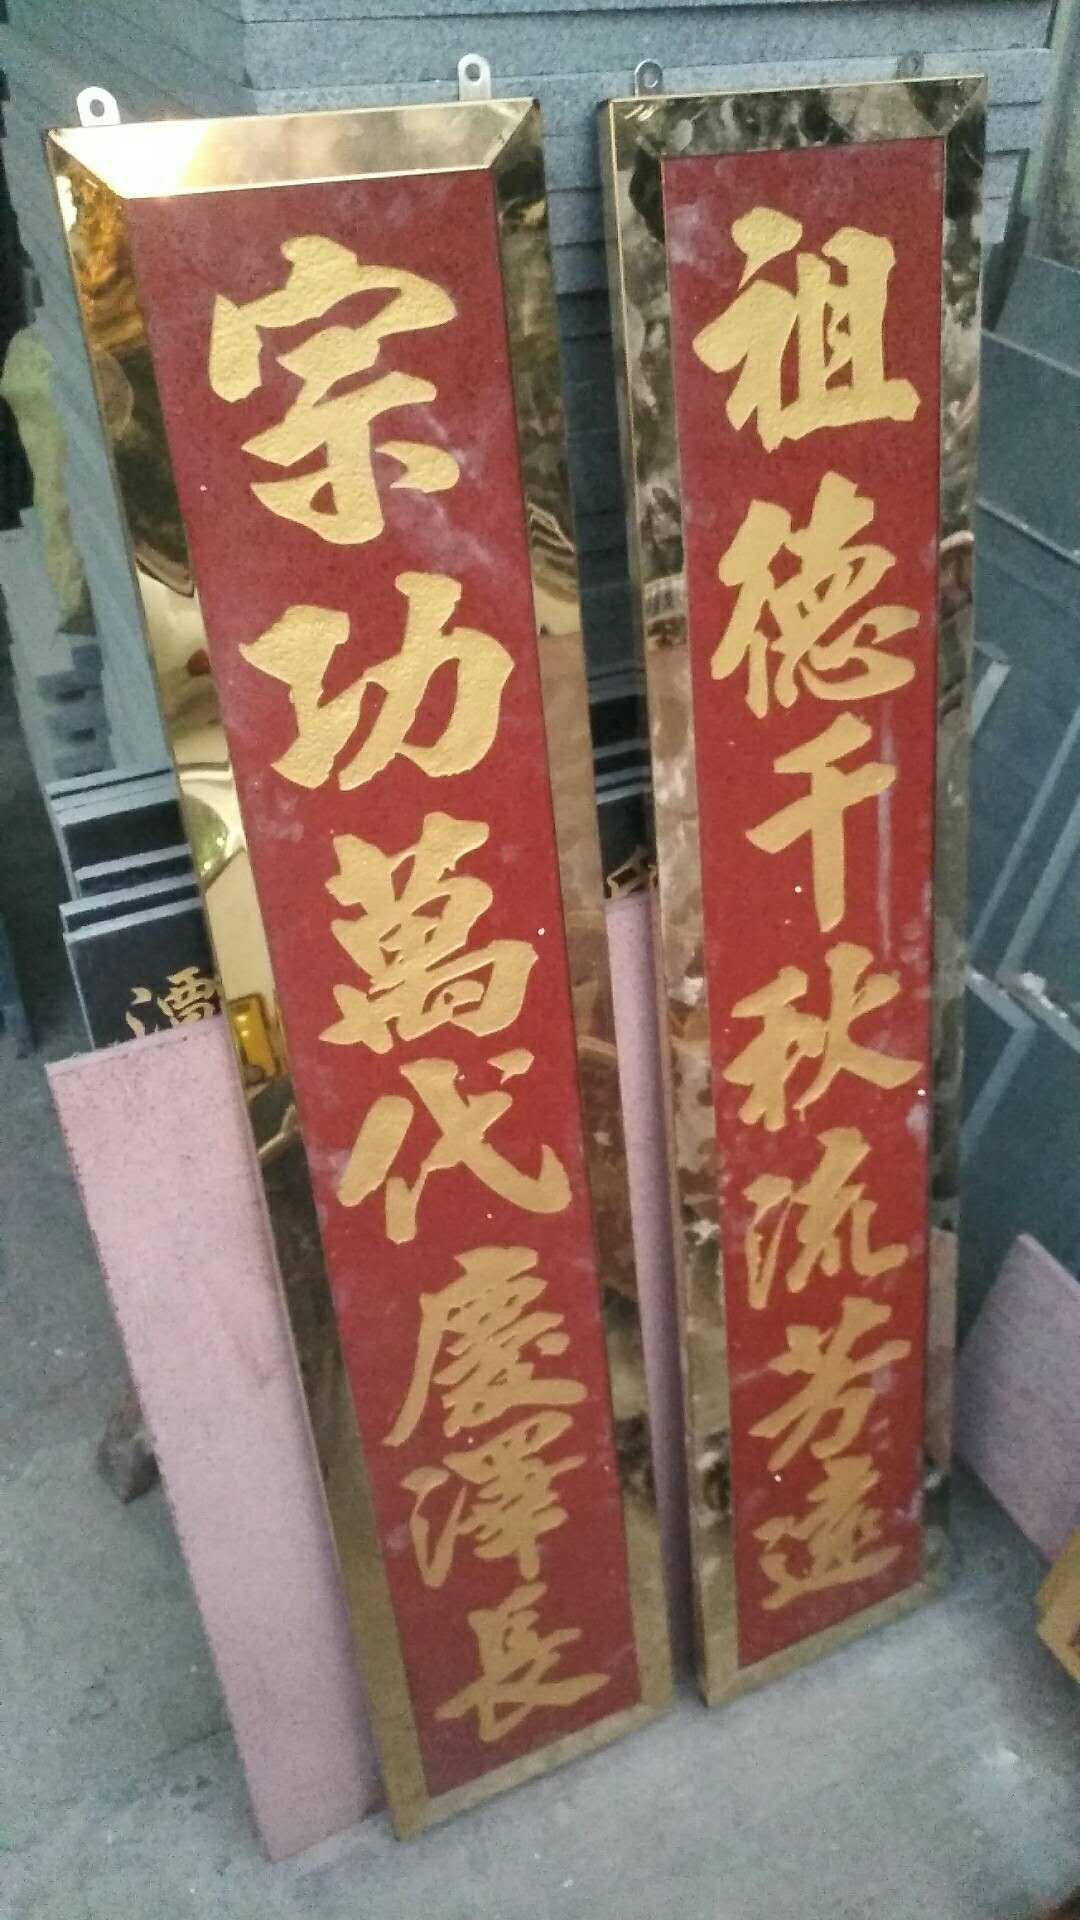 祖德千秋流芳遠
宗功萬代慶澤長
潭